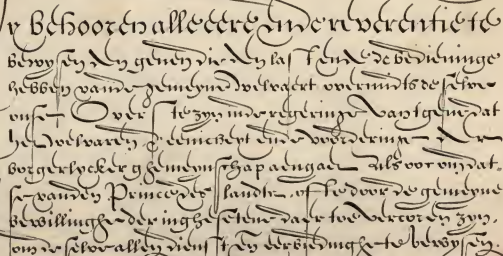 y behooren alle eere ende reverentie te
bewysen den genen die den last ende de bedieninge
hebben vande gemeyne welvaert overmidts de selve
onse Overste zyn inde regeringe van tgene dat
het welvaren eenicheyt ende voorderinge der
borgerlycker ghemeynschap aengaet Als voor om dat-
se vanden Prince des landts, ofte door de gemeyne
bewillinghe der inghesetene daer toe vercoren zyn.
om de selve allen dienst en eerbiedinghe te bewysen.